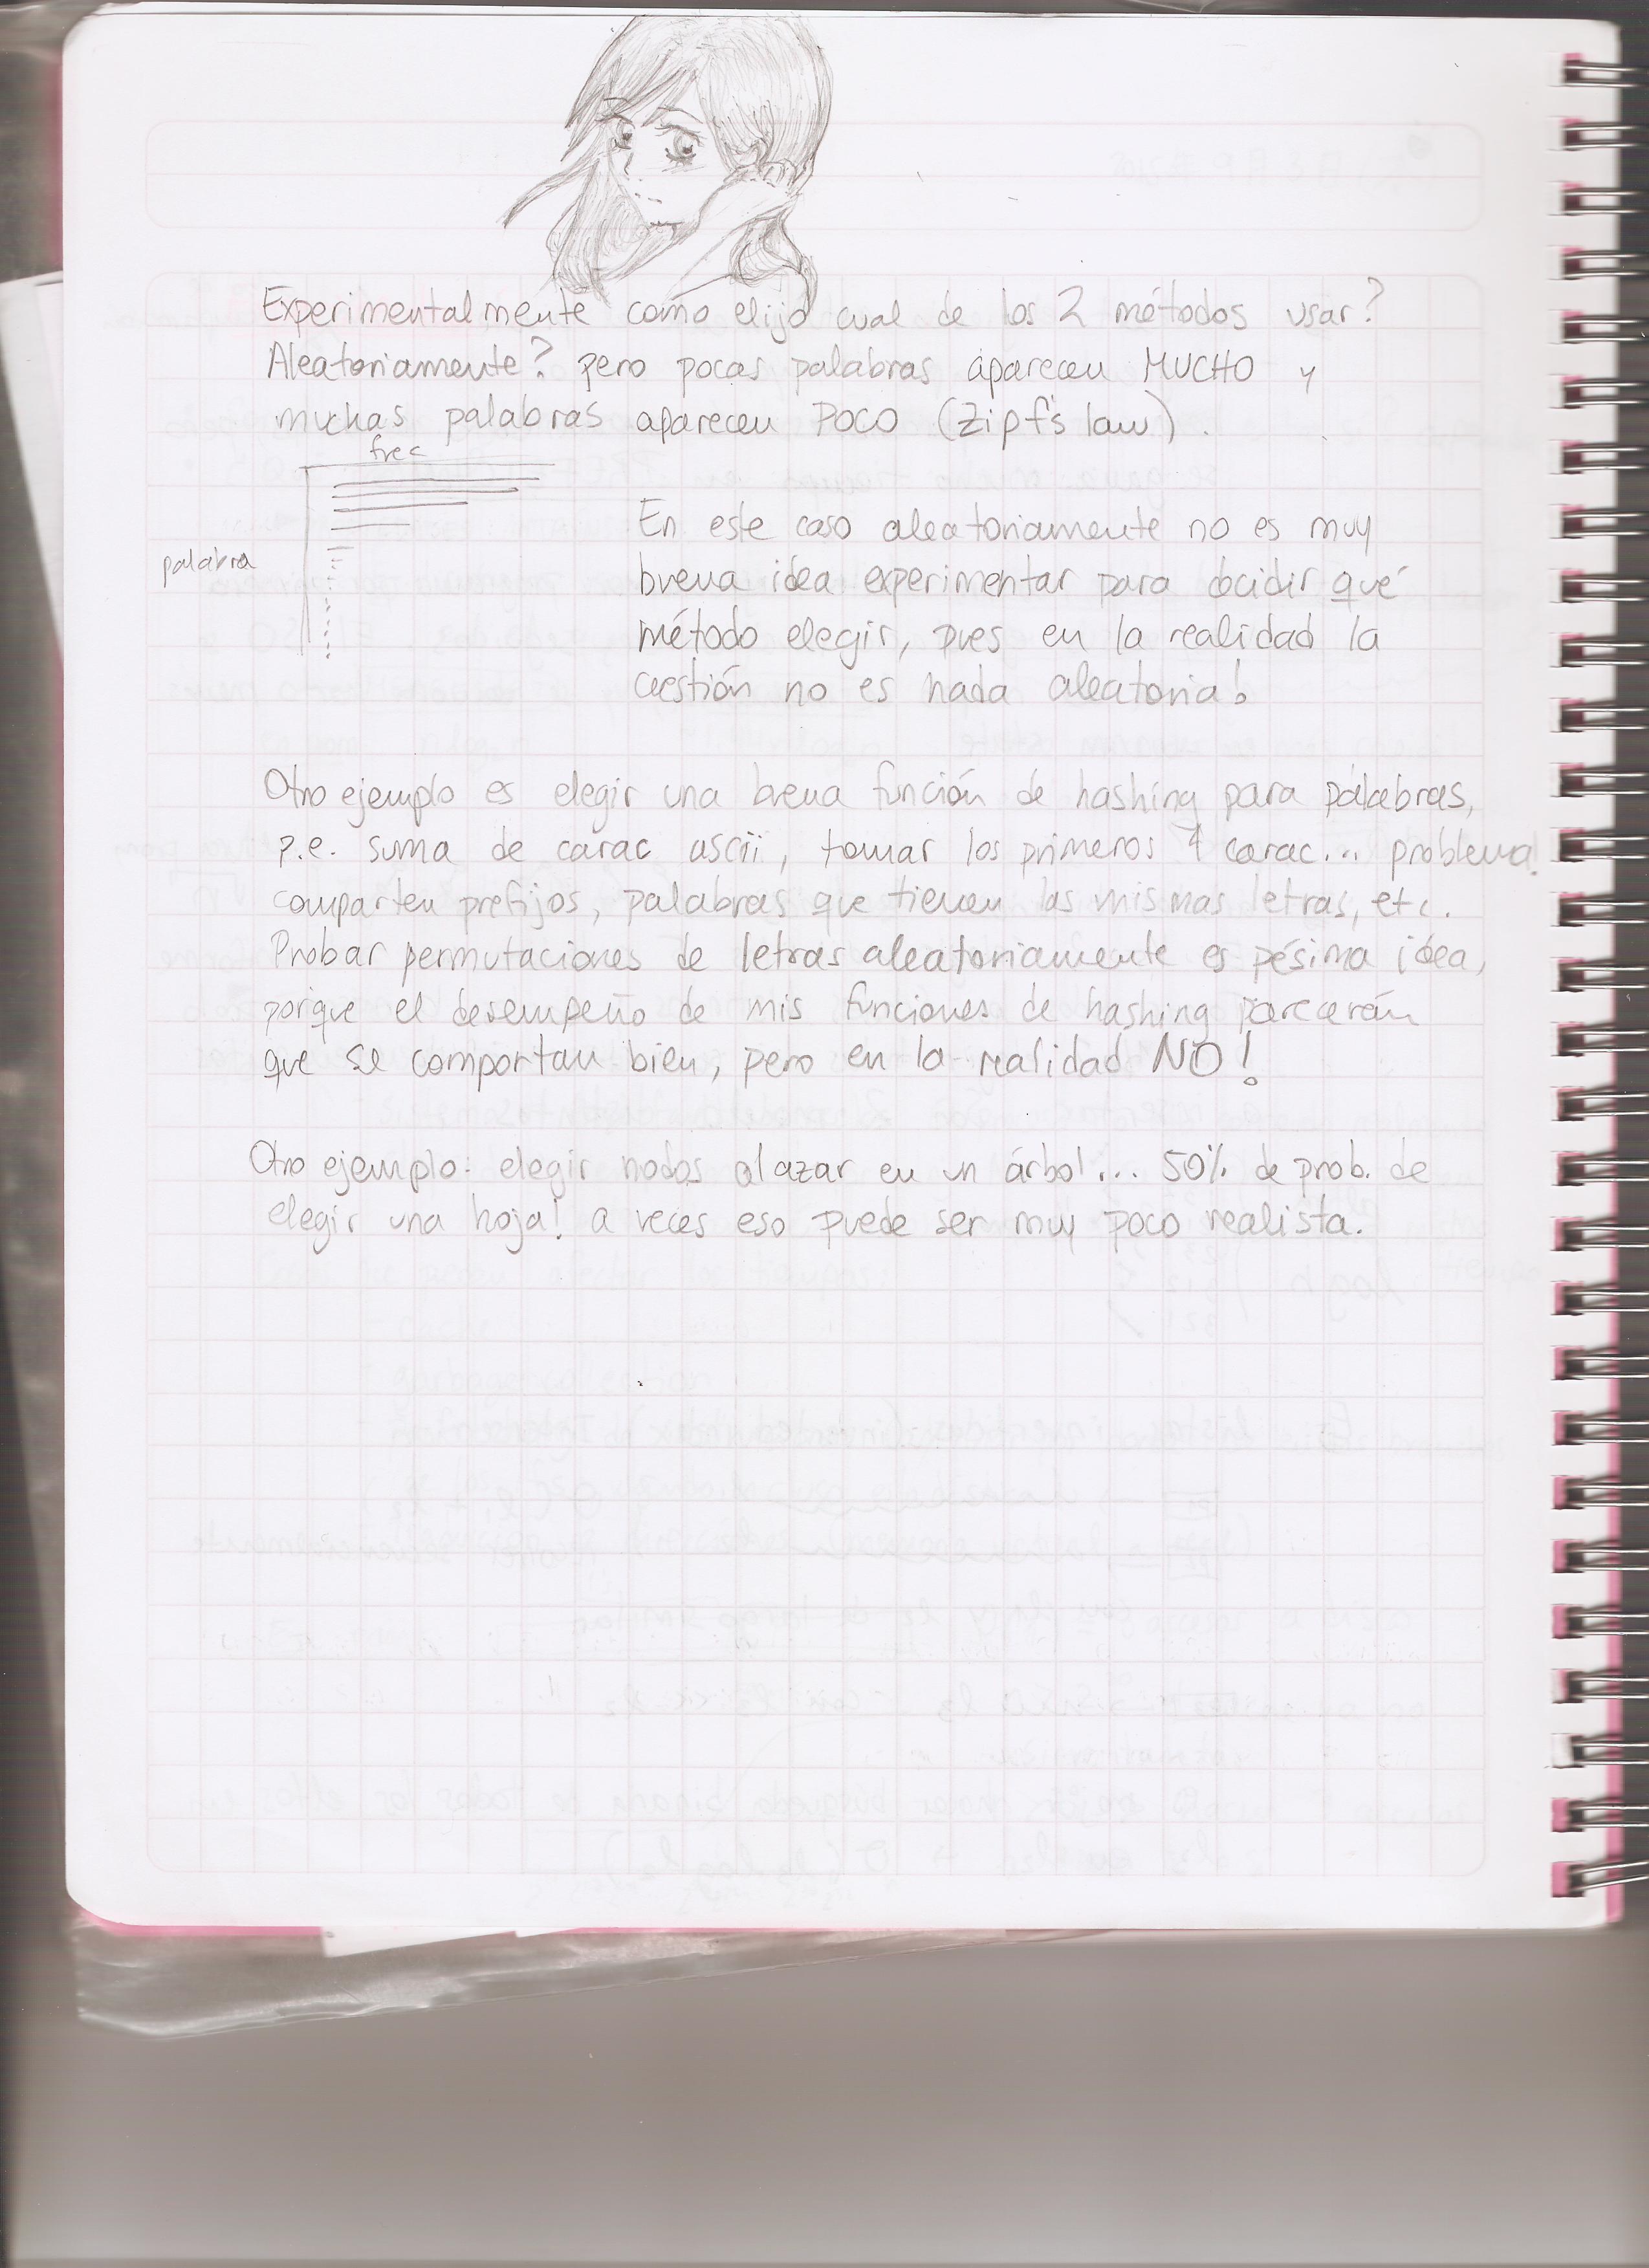 Experimentalmente como elijo cual de los 2 métodos usar?
Aleatoriamente? pero pocas palabras aparecen MUCHO y
muchas palabras aparecen POCO (Zipf's law).
frec
palabra
En este caso aleatoriamente no es muy
buena idea experimentar para decidir qué
método elegir, pues en la realidad la
cuestión no es nada aleatoria!
Otro ejemplo es elegir una buena función de hashing para palabras,
p.e. suma de carac ascii, tomar los primeros 4 carac... problema!
comparten prefijos, palabras que tienen las mismas letras, etc.
Probar permutaciones de letras aleatoriamente es pésima idea,
porque el desempeño de mis funciones de hashing parecerán
que se comportan bien, pero en la realidad NO!
Otro ejemplo: elegir nodos al azar en un árbol... 50% de prob. de
elegir una hoja! a veces eso puede ser muy poco realista.